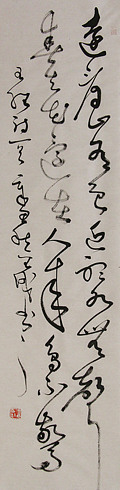 遠看山有色近聽水無聲
春去花還在人來鳥不驚
王維詩